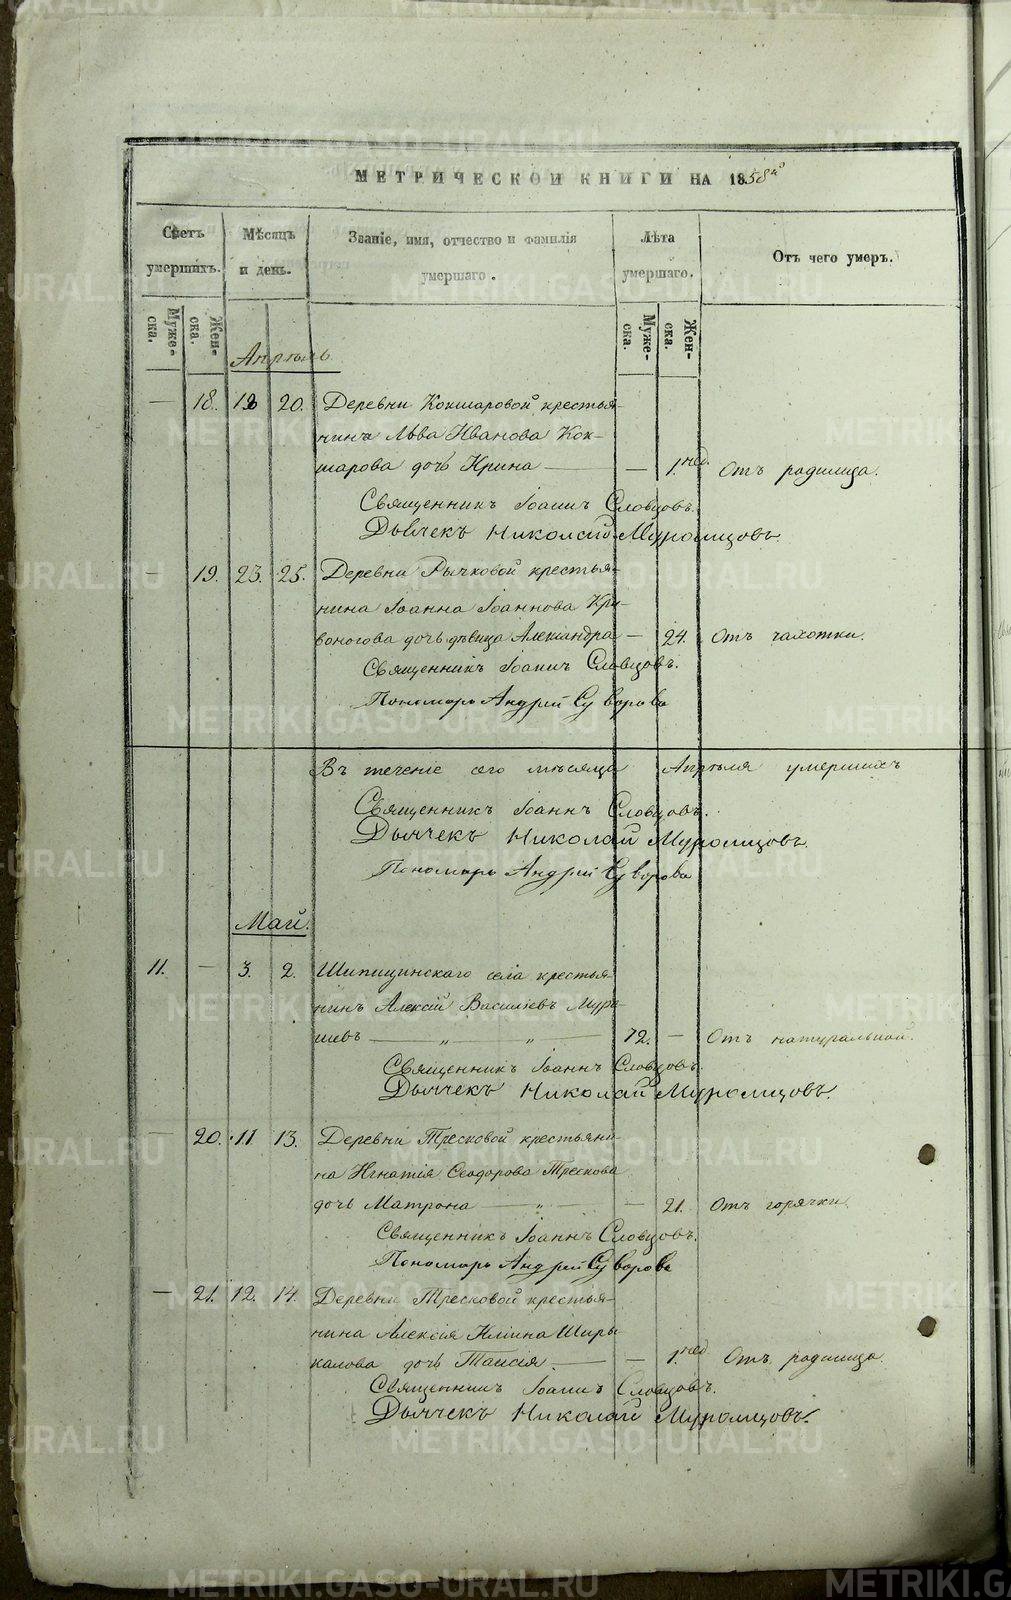 МЕТРИЧЕСКОЙ КНИГИ НА 1858й
Счетъ умершихъ.
Мѣсяцъ и день.
Званіе, имя, отчество и фамилія умершаго.
Лѣта умершаго.
Отъ чего умеръ.
Муже-ска.
Жен-ска.
Муже-ска.
Жен-ска.
Апрѣль
— 18. 20. Деревни Кокшаровой крестья-
нина Льва Иванова Кок-
шарова дочь Ирина — — 1.нед. Отъ родимца.
Священникъ Іоаннъ Словцовъ.
Дьячекъ Николай Муромцовъ.
— 19. 23. 25. Деревни Рычковой крестья-
нина Іоанна Іоаннова Кри-
воногова дочь дѣвица Александра — 24. Отъ чахотки.
Священникъ Іоаннъ Словцовъ.
Пономарь Андрей Суворовъ
Въ теченіе сего мѣсяца Апрѣля умершихъ
Священникъ Іоаннъ Словцовъ.
Дьячекъ Николай Муромцовъ.
Пономарь Андрей Суворовъ
Май.
11. — 3. 2. Шипицинскаго села крестья
нинъ Алексій Василіевъ
шевъ — „ — „ — 72. — Отъ натуральной.
Священникъ Іоаннъ Словцовъ.
Дьячекъ Николай Муромцовъ.
— 20. 11 13. Деревни Тресковой крестьяни-
на Игнатія Ѳеодорова Трескова
дочь Матрона — „ — — 21. Отъ горячки.
Священникъ Іоаннъ Словцовъ.
Пономарь Андрей Суворовъ
— 21. 12. 14. Деревни Тресковой крестья-
нина Алексія Ширы
калова дочь Таисія. — — 1.нед Отъ родимца.
Священникъ Іоаннъ Словцовъ.
Дьячекъ Николай Муромцовъ.
METRIKI.GASO-URAL.RU